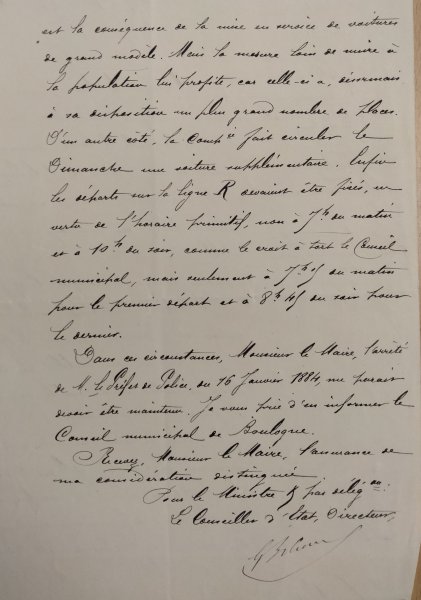 est la conséquence de la mise en service de voitures
de grand modèle. Mais la mesure loin de nuire à
la population lui profite, car celle-ci a, désormais
à sa disposition un plus grand nombre de places.
D'un autre côté, la Compie fait circuler le
Dimanche une voiture supplémentaire. Enfin
les départs sur la ligne R devaient être fixés, en
vertu de l'horaire primitif, non à 7h du matin
et à 10h du soir, comme le croit à tort le Conseil
municipal, mais seulement à 7h 45 du matin
pour le premier départ et à 8h 45 du soir pour
le dernier.
Dans ces circonstances, Monsieur le Maire, l'arrêté
de M. le Préfet de Police, du 16 Janvier 1884, me paraît
devoir être maintenu. Je vous prie d'en informer le
Conseil municipal de Boulogne.
Recevez, Monsieur le Maire, l'assurance de
ma considération distinguée
Pour le Ministre & par délégon:
Le Conseiller d'État, Directeur,